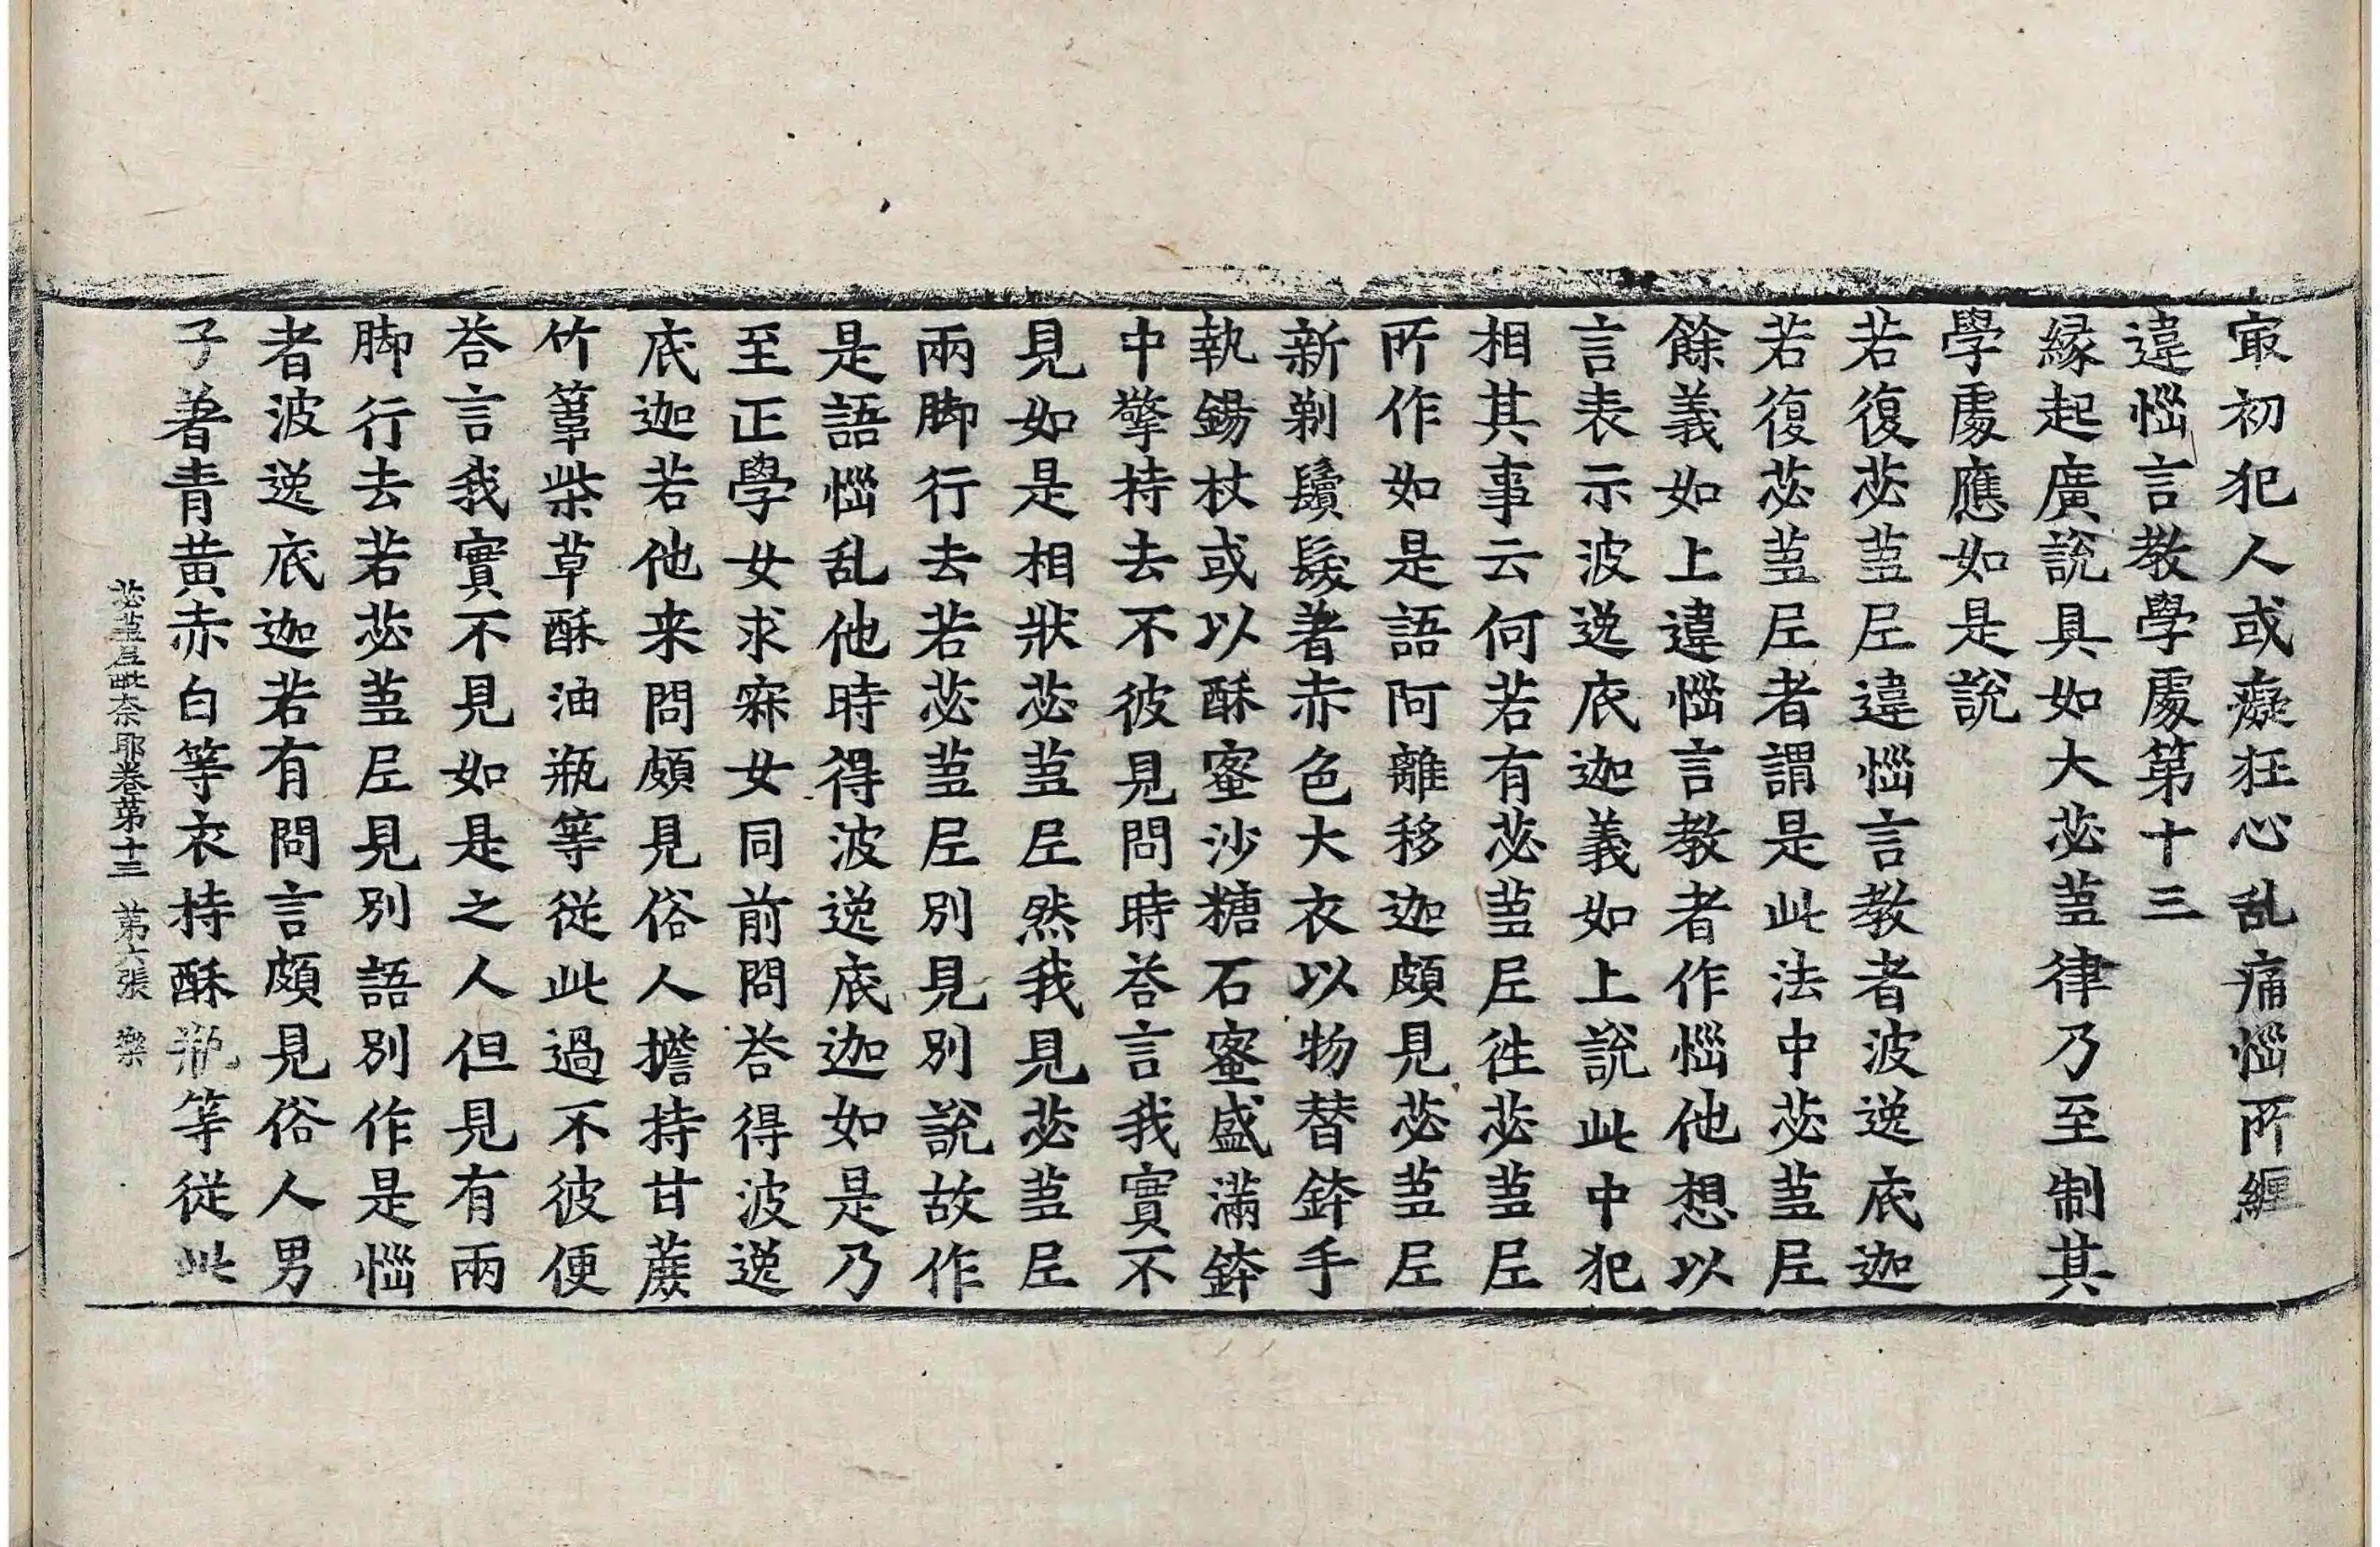 㝡初犯人或癡狂心乱痛惱所纏
違惱言教學處第十三
緣起廣說具如大苾芻律乃至制其
學處應如是說
若復苾芻尼違惱言教者波逸底迦
若復苾芻尼者謂是此法中苾芻尼
餘義如上違惱言教者作惱他想以
言表示波逸底迦義如上說此中犯
相其事云何若有苾芻尼徃苾芻尼
所作如是語阿離移迦頗見苾芻尼
新剃鬚髮著赤色大衣以物替鉢手
執錫杖或以酥蜜沙糖石蜜盛滿鉢
中擎持去不彼見問時荅言我實不
見如是相狀苾芻尼然我見苾芻尼
兩脚行去若苾芻尼別見別說故作
是語惱乱他時得波逸底迦如是乃
至正學女求寂女同前問荅得波逸
底迦若他来問頗見俗人擔持甘蔗
竹葦柴草酥油瓶等從此過不彼便
荅言我實不見如是之人但見有兩
脚行去若苾芻尼見別語別作是惱
者波逸底迦若有問言頗見俗人男
子著青黄赤白等衣持酥瓶等從此
苾芻尼毗奈耶卷第十三 第六張 樂